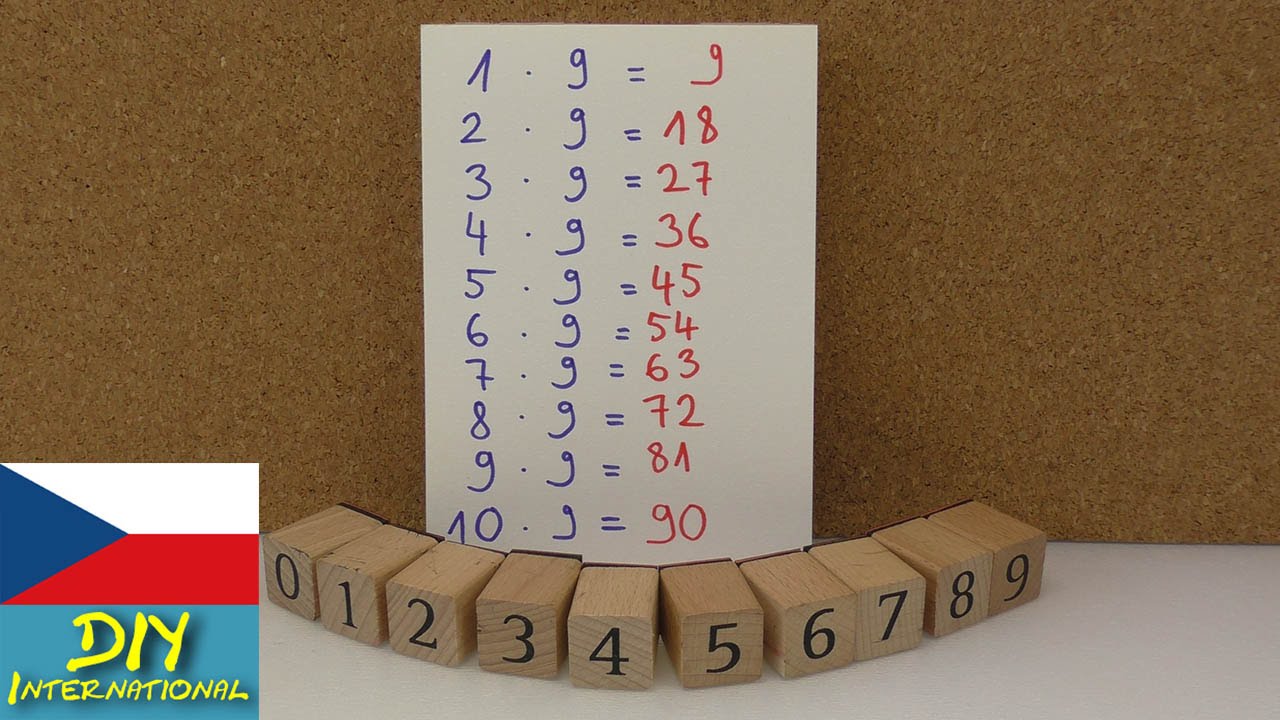 1 · 9 = 9
2 · 9 = 18
3 · 9 = 27
4 · 9 = 36
5 · 9 = 45
6 · 9 = 54
7 · 9 = 63
8 · 9 = 72
9 · 9 = 81
10 · 9 = 90
0 1 2 3 4 5 6 7 8 9
DIY
INTERNATIONAL